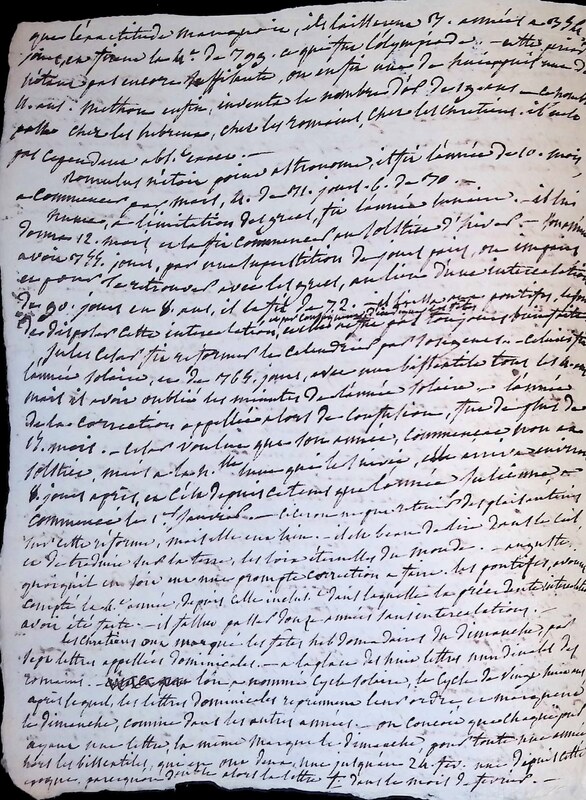 que l'exactitude manquoit, ils laisserent 3. années a 354
jours, et firent la 4e. de 393. ce qui fit l'olympiade. — cette
n'étant pas encore suffisante, on enfin usa de
ans. methon enfin, inventa le nombre d'or de 19 ans —
passa chez les hebreux, chez les romains, chez les chretiens. il n'est
pas cependant abst. exact. —
Romulus n'étoit point astronome, il fit l'année de 10. mois,
a commencer par mars, 4. de 31. jours. 6. de 30 —
Numa, a l'imitation des grecs, fit l'année lunaire. — il lui
donna 12. mois et la fit commencer au solstice d'hiver. — son année
avoit 355. jours, par une superstition de jours pairs, ou impairs
et pour se retrouver avec les grecs, au lieu d'une intercalation
de 90. jours en 8. ans, il la fit de 82. — pontifes,
de disposer cette intercalation,
Jules Cesar fit reformer le calendrier par sosigenes. — celui ci fit
l'année solaire, et de 365. jours, avec une bissextile tous les 4. ans
mais il avoit oublié les minutes de l'année solaire. — l'année
de la correction appellée alors de confusion, fut de plus de
15. mois. — cesar voulut que son année, commencat non au
solstice, mais a la n.lle lune qui le suivit, elle arriva environ
8. jours après, et c'est depuis ce tems que l'année Julienne,
commence le 1er. Janvier — ciceron ne put retenir des plaisanteries
sur cette reforme, mais elle eut lieu — il est beau de lire dans le ciel
et de traduire sur la terre, les loix eternelles du monde. — auguste
quoiqu'il en soit eut une prompte correction a faire. les pontifes, avoient
compté la 4e. année, depuis celle inclusivt. dans laquelle la précédente intercalation
avoit été faite — il fallut passer douze années sans intercalations. —
les chrétiens ont marqué les fêtes hebdomadaires du dimanche, par
sept lettres appellées dominicales. — a la place des huit lettres nundinales des
romains. — l'on a nommé Cycle solaire, le cycle de vingt huit ans
après lequel, les lettres dominicales reprennent leur ordre, et marquent
le dimanche, comme dans les autres années. — on concoit que chaque jour
ayant une lettre, la même marque le dimanche, pour toute une année
hors les bissextiles, qui en ont deux, une jusqu'au 24 fev. une depuis cette
epoque, parcequ'on double alors la lettre f dans le mois de fevrier. —